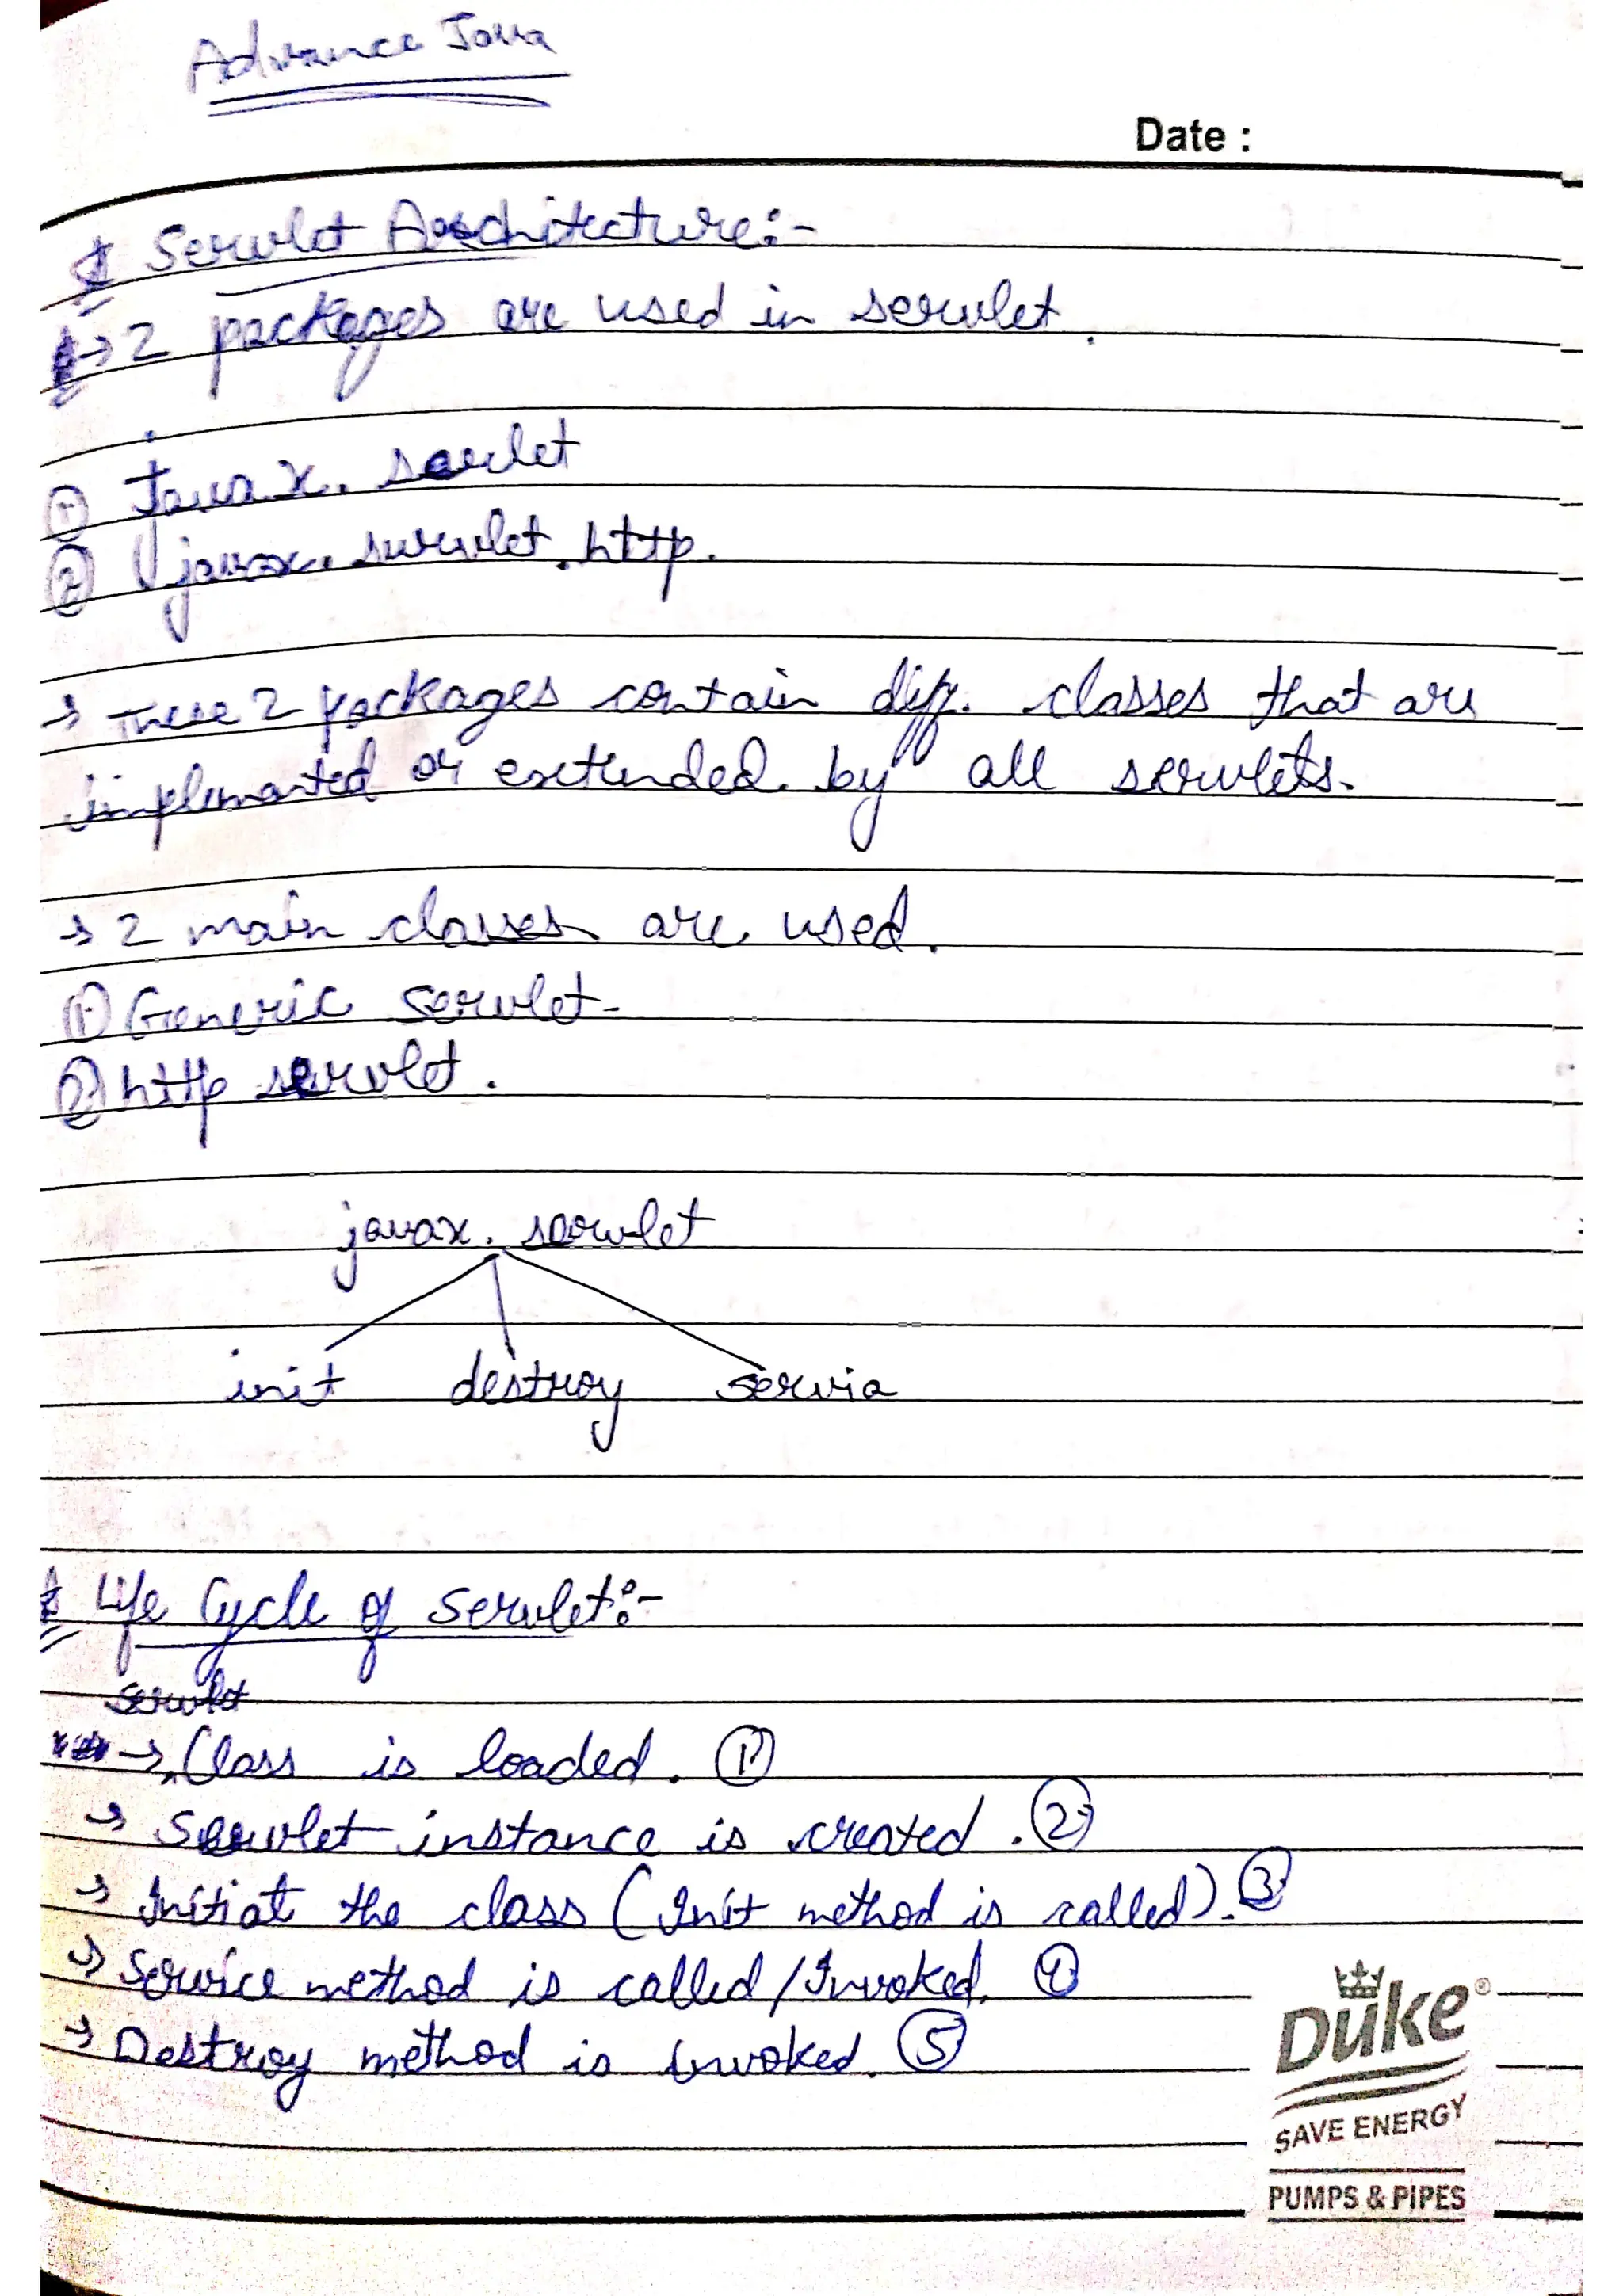 Advance Java
Date :
Servlet Architecture:-
→ 2 packages are used in servlet.
① Javax. servlet
② javax. servlet. http.
→ These 2 packages contain diff. classes that are
implemented or extended by all servlets.
→ 2 main classes are used.
① Generic Servlet-
② http servlet.
javax. servlet
init destroy service
Life Cycle of Servlet:-
Servlet
→ Class is loaded. ①
→ Servlet instance is created. ②
→ Initiat the class (Init method is called). ③
→ Service method is called/Invoked. ④
→ Destroy method is invoked. ⑤
Duke®
SAVE ENERGY
PUMPS & PIPES